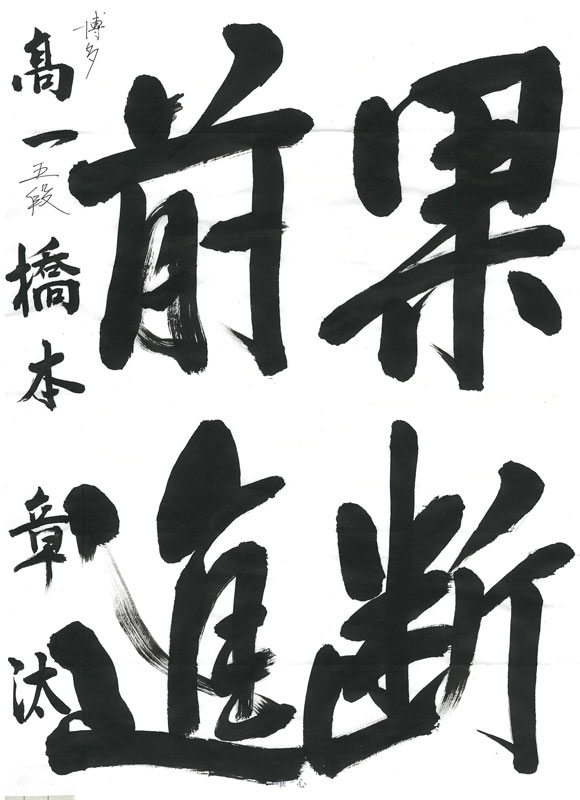 果断
前進
博多
高一 五段 橋本 章汰